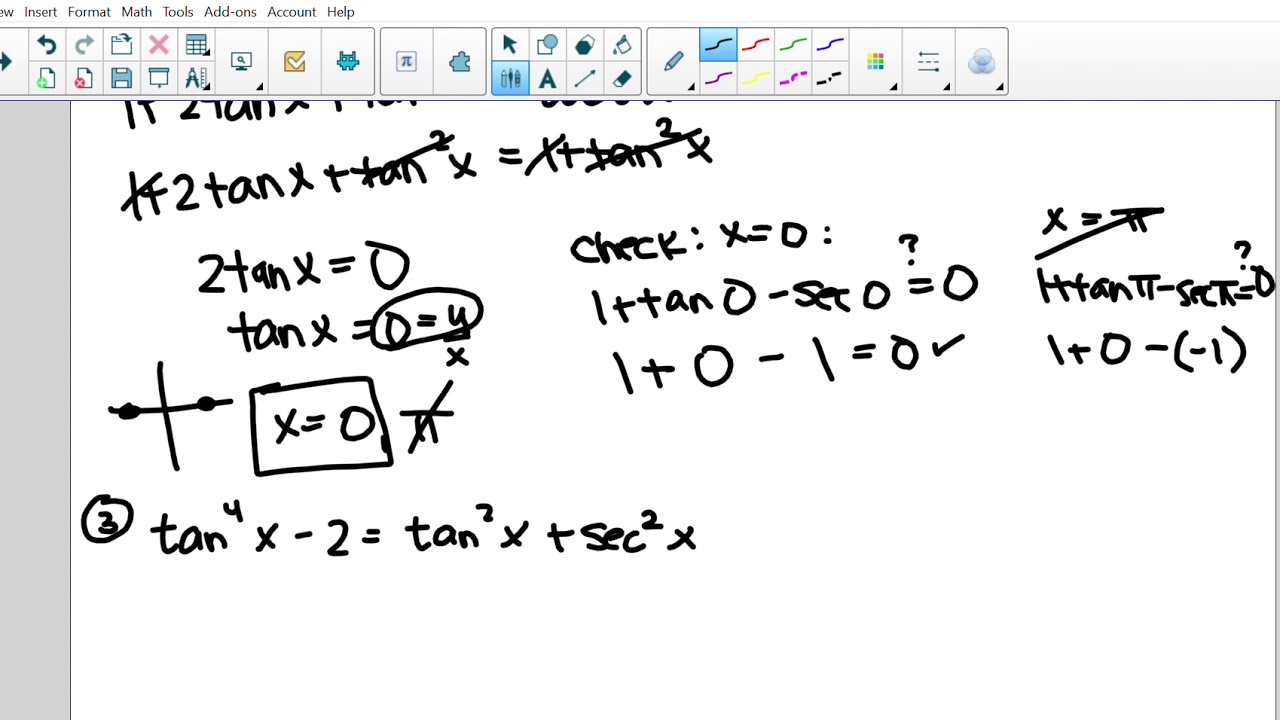 ew Insert Format Math Tools Add-ons Account Help
π
A
1+2tanx+
1+2tanx+tan²x = 1+tan²x
2tanx = 0
tanx = 0 = y/x
x = 0, π
check: x=0:
1+tan0-sec0 ?= 0
1+0-1=0✓
x = π
1+tanπ-secπ ?= 0
1+0-(-1)
③ tan⁴x-2=tan²x+sec²x